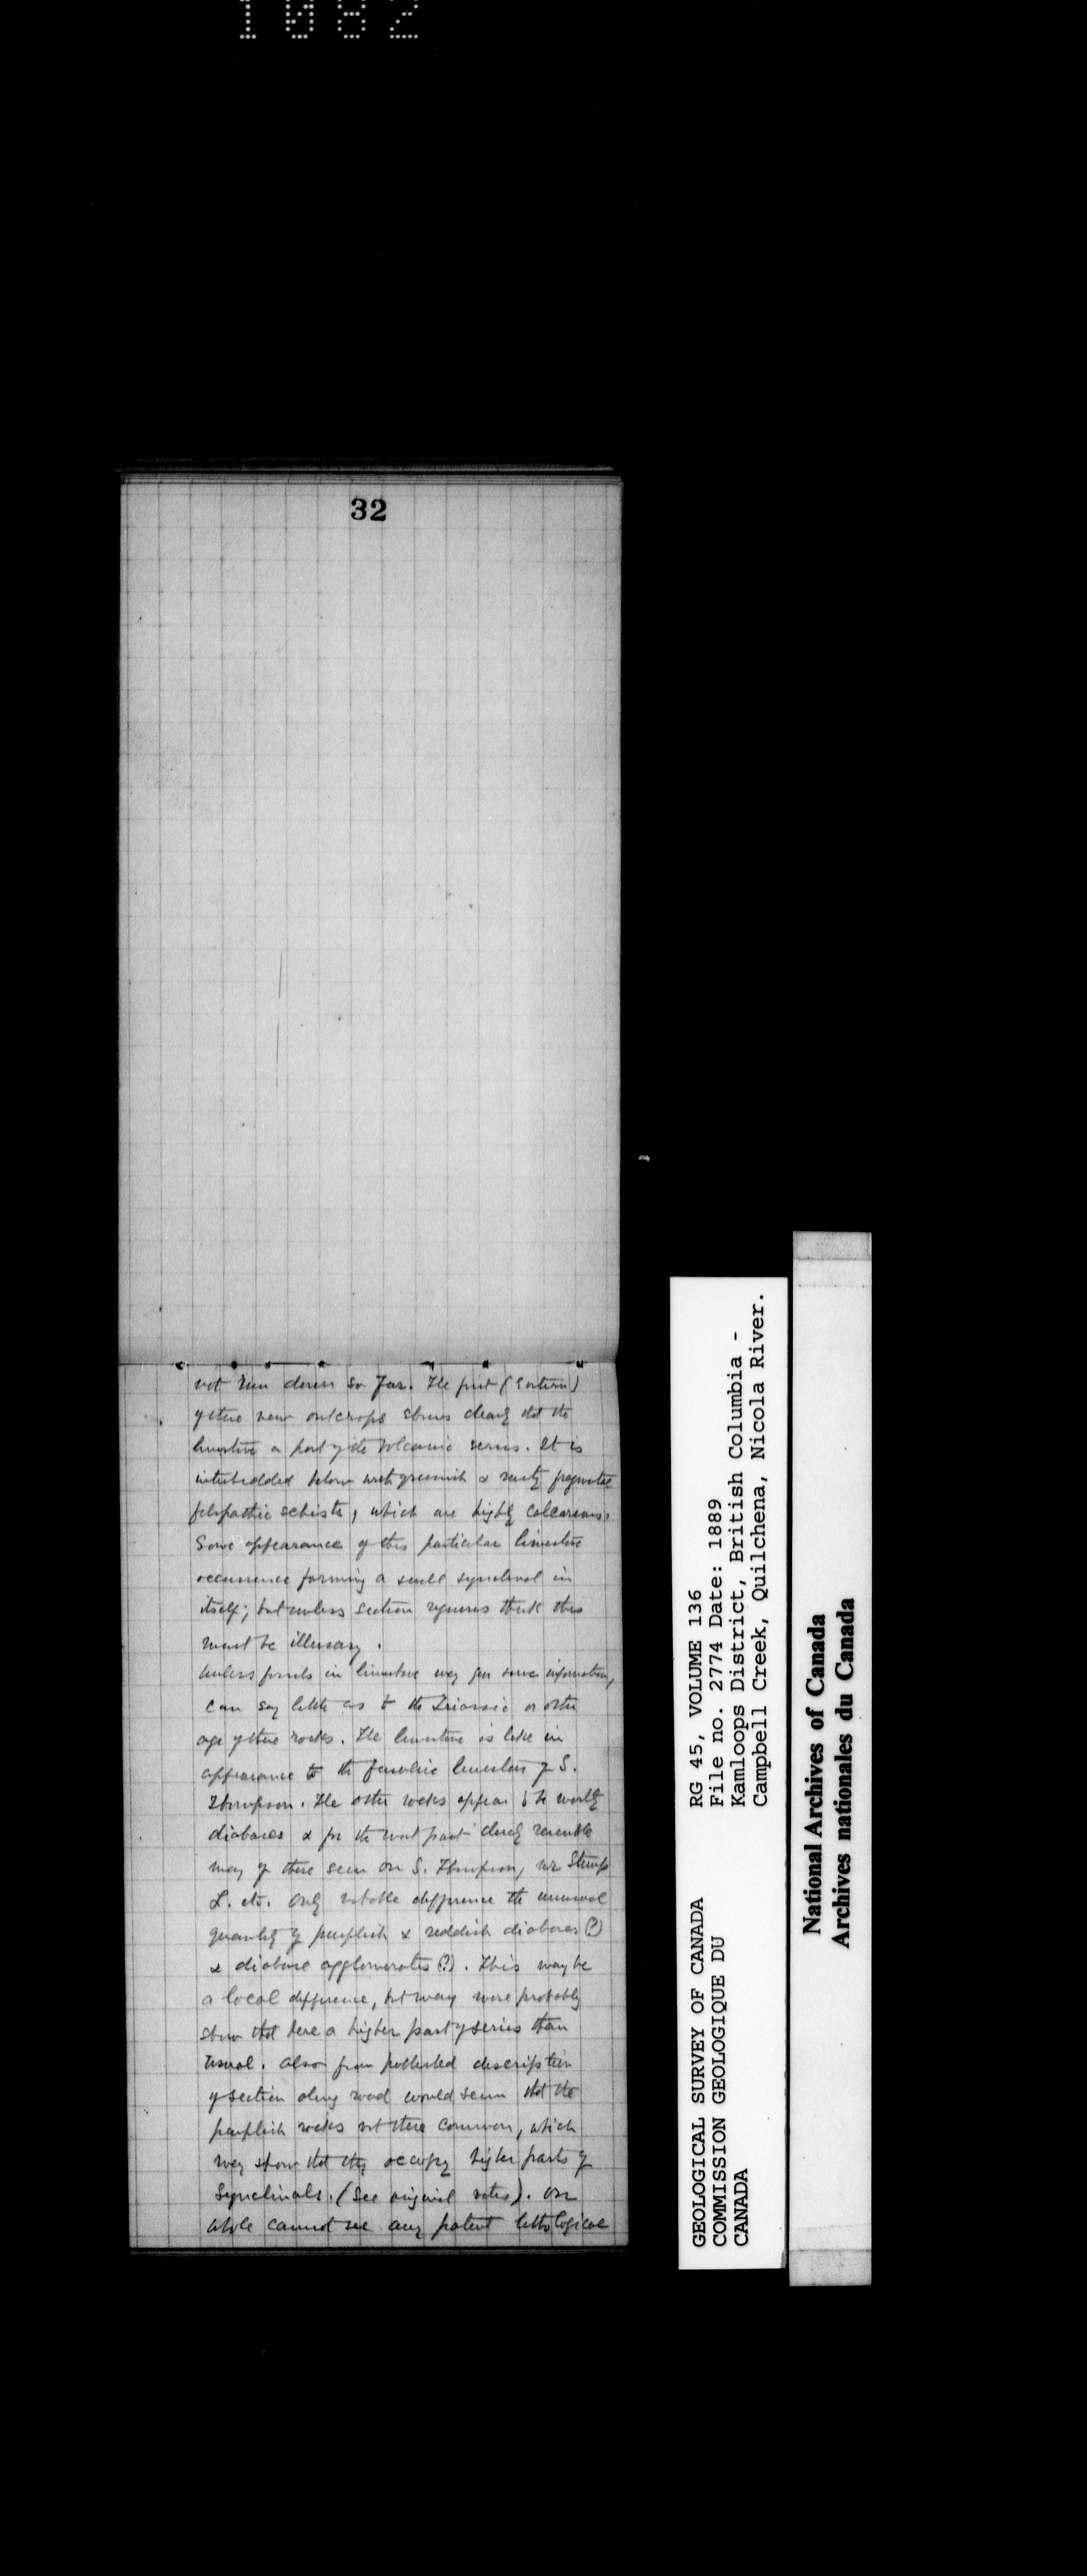 1082
32
not run down so far. The first (Eastern)
of these new outcrops shows clearly that the
limestone a part of the Volcanic series. It is
interbedded below with greenish & rusty fragmental
felspathic schists, which are highly calcareous.
Some appearance of this particular limestone
occurrence forming a small synclinal in
itself; but unless section requires think this
must be illusory.
Unless fossils in limestone may give some information,
can say little as to the Triassic or other
age of these rocks. The limestone is like in
appearance to the fusulina limestones of S.
Thompson. The other rocks appear to be mostly
diabases & for the most part closely resemble
many of those seen on S. Thompson, nr Stump
L. etc. Only notable difference the unusual
quantity of purplish & reddish diabases (?)
& diabase agglomerates (?). This may be
a local difference, but may more probably
show that here a higher part of series than
usual. Also from published description
of section along road would seem that the
purplish rocks not there common, which
may show that they occupy higher parts of
Synclinals. (See original notes). On
whole cannot see any patent lithological
GEOLOGICAL SURVEY OF CANADA
COMMISSION GEOLOGIQUE DU
CANADA
RG 45, VOLUME 136
File no. 2774 Date: 1889
Kamloops District, British Columbia -
Campbell Creek, Quilchena, Nicola River.
National Archives of Canada
Archives nationales du Canada